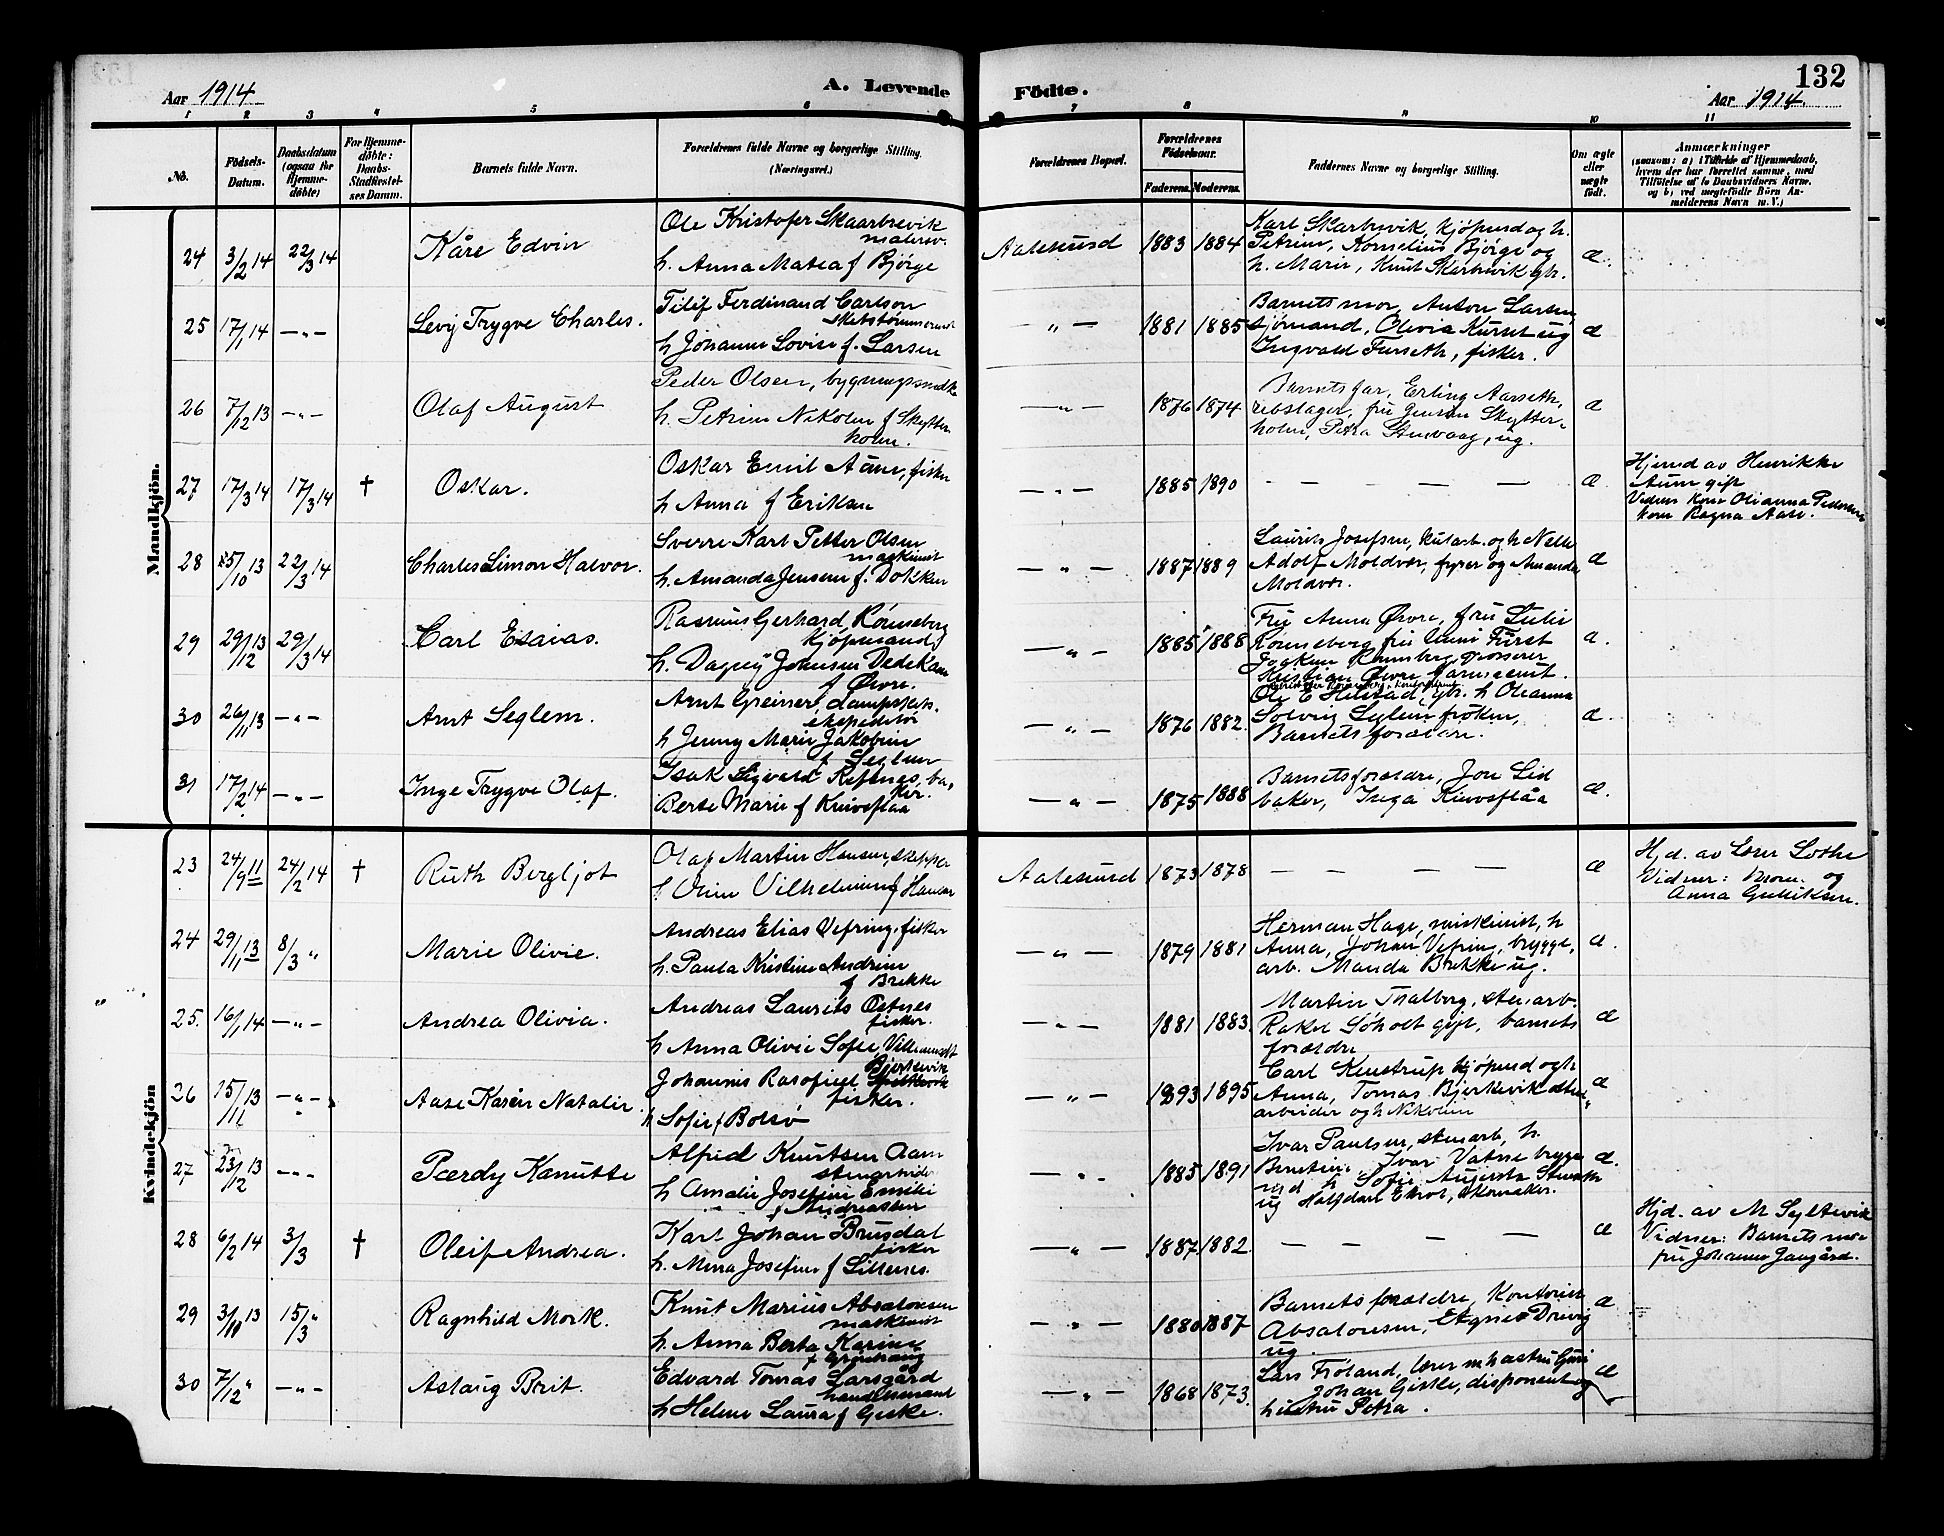 132
Aar 1914
A. Levende
Födte.
Aar 1914
1 2 3 4 5 6 7 8 9 10 11
No.
Födsels-
Datum.
Daabsdatum
(ogsaa for
Hjemme-
döbte)
For Hjemme-
döbte:
Daabs-
Stadfæstel-
ses Datum.
Barnets fulde Navn.
Forældrenes fulde Navne og borgerlige Stilling.
(Næringsvei.)
Forældrenes Bopæl.
Forældrenes
Födselsaar.
Faderens.
Moderens.
Faddernes Navne og borgerlige Stilling.
Om ægte
eller
uægte
födt.
Anmærkninger
(saasom: a) i Tilfælde af Hjemmedaab,
hvem der har forrettet samme, med
Tilföielse af to Daabsvidners Navne,
og b) ved uægtefödte Börn An-
melderens Navn m. V.)
Mandkjön.
24 3/2 14 22/3 14 Kåre Edvin
Ole Kristofer Skaarbrevik
h. Anna Matea f Bjørge
Aalesund 1883 1884
Karl Skarbrevik, kjøpmd og h.
Petrine, Kornelius Bjørge og
h. Marie, Knut Skarbrevik gbr.
æ.
25 17/1 14 —"— Levy Trygve Charles.
Ferdinand Carlson
h Johanne Lovise f. Larsen
—"— 1881 1885
Barnets mor, Anton Larsen
sjømand, Olivia ug
Ingvald Furseth, fisker.
æ
26 7/12 13 —"— Olaf August
Peder Olsen,
h. Petrine Nikolea f Skytter
holm.
—"— 1876 1874
Barnets far, Erling Aarseth,
rebslager, fru Jensen Skytter-
holm, Petra Stenvaag, ug.
æ
27 17/3 14 17/3 14 † Oskar.
Oskar Emil Aune, fisker
h Anna f Eriksen
—"— 1885 1890
— — — — —
æ
Hjemd av Henrikke
Aune gift
Vidner kone Olianna Pedersen
kone Ragna Aase.
28 25/10 13 22/3 14 Charles Simon Halvor.
Sverre Karl Petter Olsen
maskinist
h. Amanda Jensen f. Dokken
—"— 1887 1889
Laurits Josefsen, kularb. og h Nelle
Adolf Moldvær, fyrer og Amanda
Moldvær.
æ
29 29/12 13 29/3 14 Carl Esaias.
Rasmus Gerhard Rønneberg
kjøpmand
h. Dagny Johnsen Dedekam
f Øvre.
—"— 1885 1888
Fru Anna Øvre, fru Lulli
Rønneberg fru Fürst
Joakim Rønneberg, grosserer
Kristian Øvre
æ.
30 26/11 13 —"— Arnt Seglem.
Arnt Greiner, dampskibs.
ekspeditør
h Jenny Marie Jakobine
f Seglem
—"— 1876 1882.
Ole E Hilstad gbr. h Oleanna
Solveig Seglem frøken,
Barnets forældre.
æ.
31 17/2 14 —"— Inge Trygve Olaf.
Isak Sigvald Refsnes, ba,
ker.
Berte Marie f Knivsflaa
—"— 1875 1888
Barnets forældre, Jon Lid
baker, Inga Knivsflåa
æ.
Kvindekjön
23 24/9 11 24/2 14 † Ruth Bergljot
Olaf Martin Hansen, skipper
h Vilhelmine f Hansen
Aalesund 1873 1878
— — — —
æ
Hjd. av Lærer Lothe
Vidner: og
Anna Gulliksen.
24 29/11 13 8/3 " Marie Olivie.
Andreas Elias Vefring, fisker
h. Paula Kristine Andrine
f Brekke
—"— 1879 1881
Herman Hage, maskinist, h
Anna, Johan Vefring, brygge,
arb. Manda Brekke ug.
æ.
25. 16/1 14 —"— Andrea Olivia.
Andreas Laurits Østnes
fisker.
h Anna Olivie Sofie
—"— 1881 1883.
Martin Thalberg, stenarb.
Rakel Søholt gift, barnets
forældre
æ
26 15/11 13 —"— Aase Karen Natalie
Johannes Rasofiel Bjerkevik
fisker.
h Sofie f Bolsø
—"— 1893 1895
Carl Kjøpmd og h
Anna, Tomas Bjerkevik
arbeider og h Nikoline
æ
27 23/12 13 —"— Pærdy Kanutte
Alfred Knutsen Aam
stenarbeider
h Amalie Josefine Emilie
f Andreassen
—"— 1885 1891
Ivar Paulsen, stenarb, h.
Berntine, Ivar Vatne brygge
h Sofie, Augusta
ug Halfdan skomaker.
æ.
28 6/2 14 3/3 † Oleif Andrea.
Karl Johan Brusdal
fisker
h. Mina Josefine f Sittenes.
—"— 1887 1882.
— — — —
æ
Hjd. av M Syltevik
Vidner: Barnets mor
fru Johanne Gangård.
29 3/10 13 15/3 " Ragnhild Mork.
Knut Marius Absalonsen
maskinist
h. Anna Berta Karine
f
—"— 1880 1887
Barnets forældre, Kontorist
Absalonsen, Drivig
ug.
æ
30 7/12 " —"— Aslaug Brit.
Edvard Tomas Larsgård
handelsmand
h Helene Laura f Giske.
—"— 1868 1873.
Lars Frøland, lærer m hustru Guri
Johan Giske, disponent og
hustru Petra.
æ